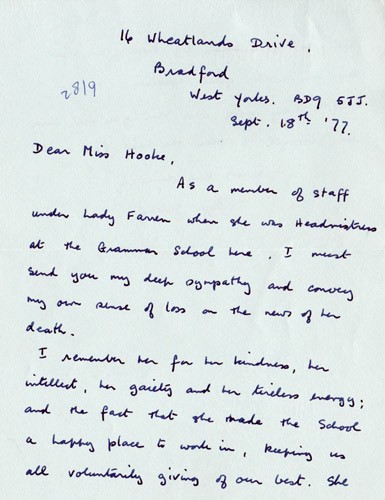 16 Wheatlands Drive,
Bradford
2819
West Yorks. BD9 5JJ.
Sept. 18th '77.
Dear Miss Hooke,
As a member of staff
under Lady Farren when she was Headmistress
at the Grammar School here, I must
send you my deep sympathy and convey
my own sense of loss on the news of her
death.
I remember her for her kindness, her
intellect, her gaiety and her tireless energy;
and the fact that she made the School
a happy place to work in, keeping us
all voluntarily giving of our best. She